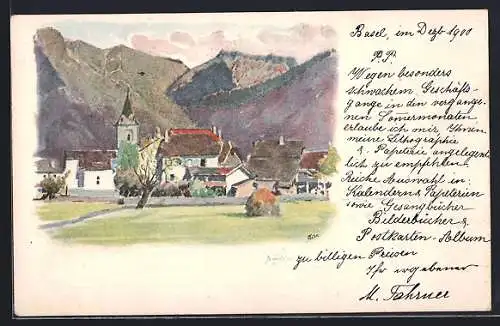 Basel, im Dezb 1900
P.P.
Wegen besonders
schwachem Geschäfts-
gange in den vergange-
nen Sommermonaten
erlaube ich mir, Ihnen
meine Lithographie
& Papeterie angelegent-
lich zu empfehlen.
Reiche Auswahl in:
Kalendern & Papeterien
sowie Gesangbücher
Bilderbücher &
Postkarten-Album
zu billigen Preisen
Ihr ergebener
M. Fahrner